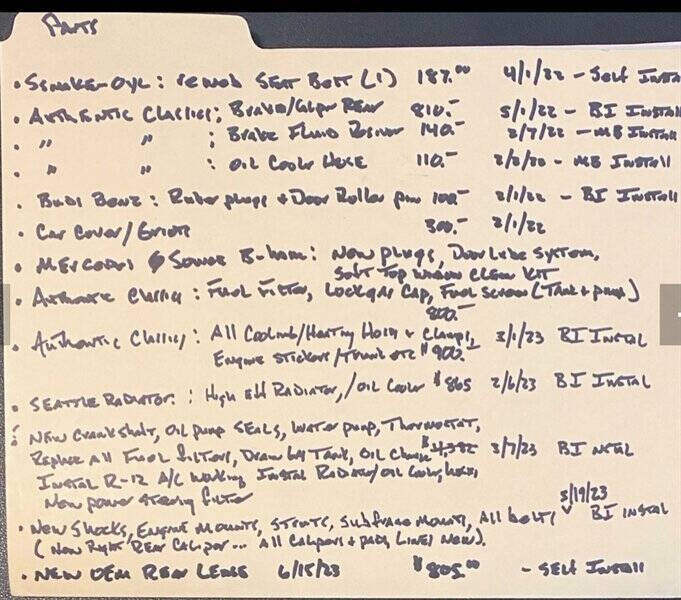 Parts
• Smoke-Oyl: Remod Seat Bott (1) 187.00 4/1/22 - Self Instal
• Authentic Classics; Brake/Caliper Rear 810.- 5/1/22 - BI Install
• " " ; Brake Fluid 140.- 2/7/22 - MB Install
• " " : Oil Cooler Hose 110.- - MB Install
• Budi Benz: Rubber plugs + Door Roller pin 100- 2/1/22 - BI Install
• Car Cover/ 300.- 2/1/22
• B-ham: New plugs, Door Lube System,
Soft Top Window Clean Kit
• Authentic Classics: Fuel Filter, Lock gas Cap, Fuel Screen (Tank + pump)
800.-
• Authentic Classics: All Cooling/Heating Hoses + Clamps,
Engine Stickers/Trunk etc $900.- 3/1/23 BI Instal
• Seattle Radiator: : High Eff Radiator,/Oil Cooler $865 2/6/23 BI Instal
• New Crankshaft, Oil pump Seals, Water pump, Thermostat,
Replace All Fuel filters, Drain Gas Tank, Oil Change $4,382 3/7/23 BI nstal
Instal R-12 A/C Working Instal Radiator/Oil Cooler, hoses,
New power steering filter
• New Shocks, Engine Mounts, Struts, Subframe Mounts, All bolts 5/19/23 BI Instal
(New Right Rear Caliper... All Calipers + pads, Lines New).
• New OEM Rear Lense 6/15/23 $805.00 - Self Install